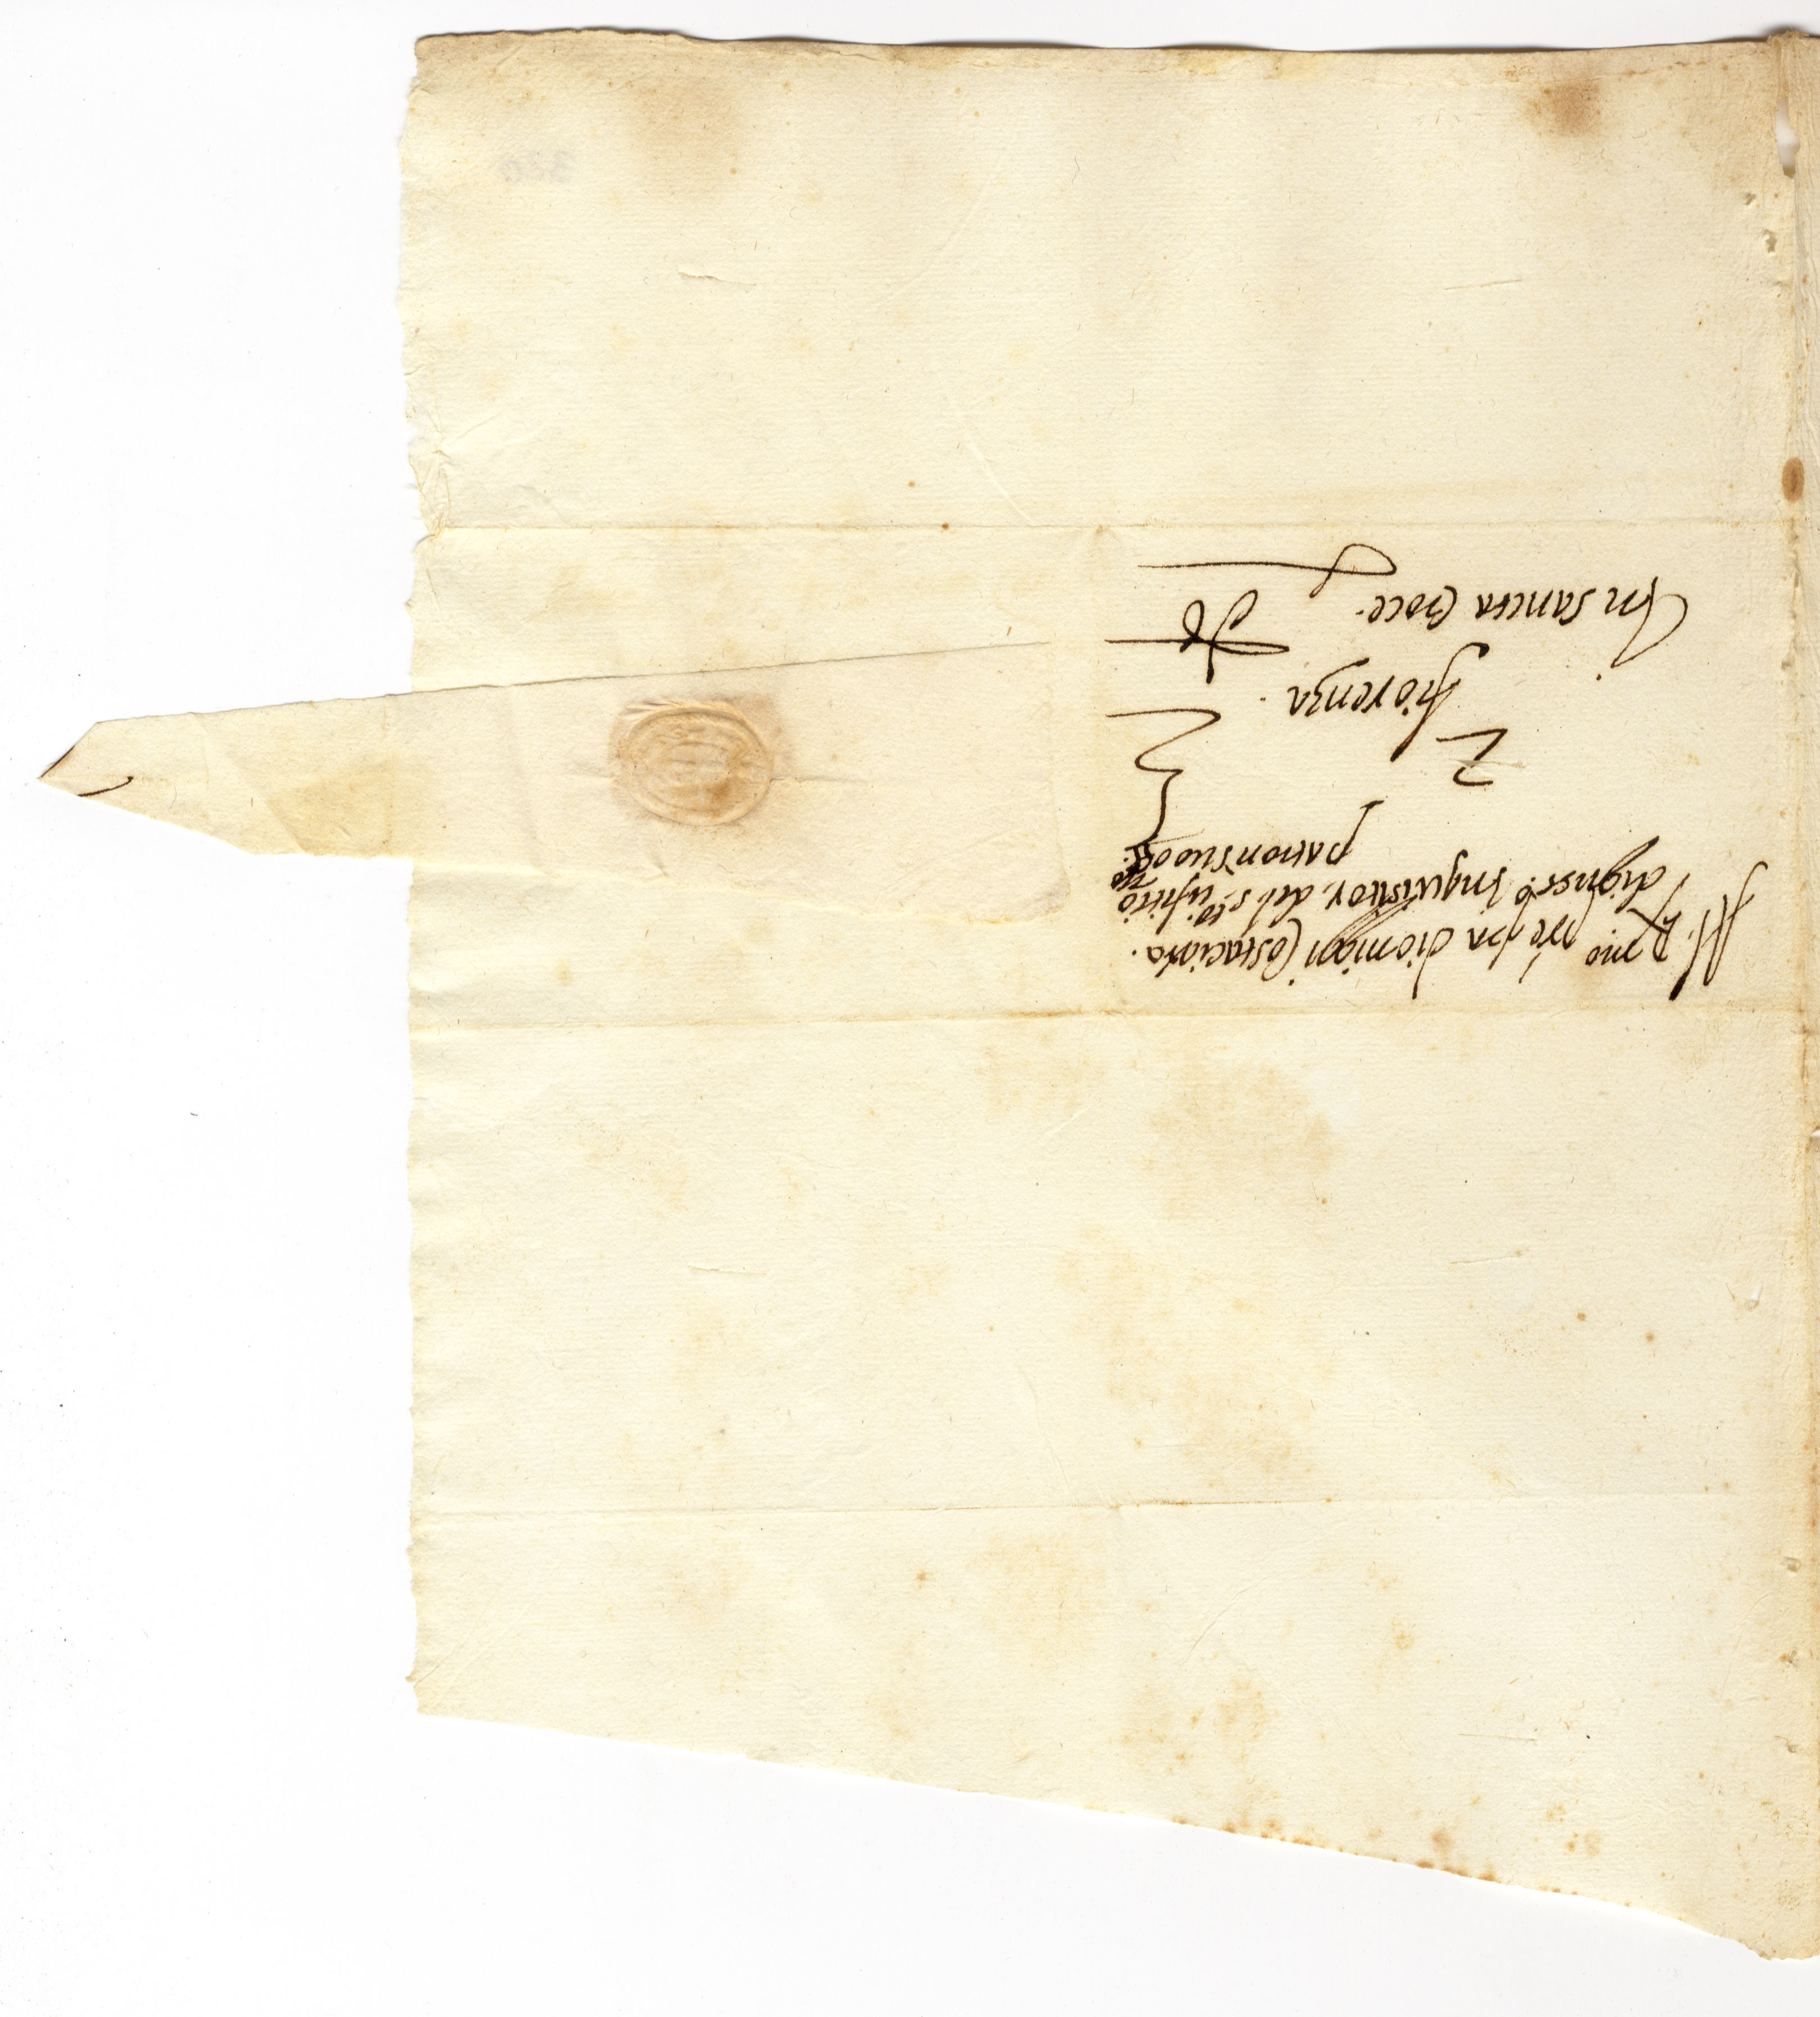 Al R.mo pre fra dionigi Costacciaro.
digniss.o Inquisitor del s.to ufitio
patron suo oss.mo
fiorenza.
In santa Croce.